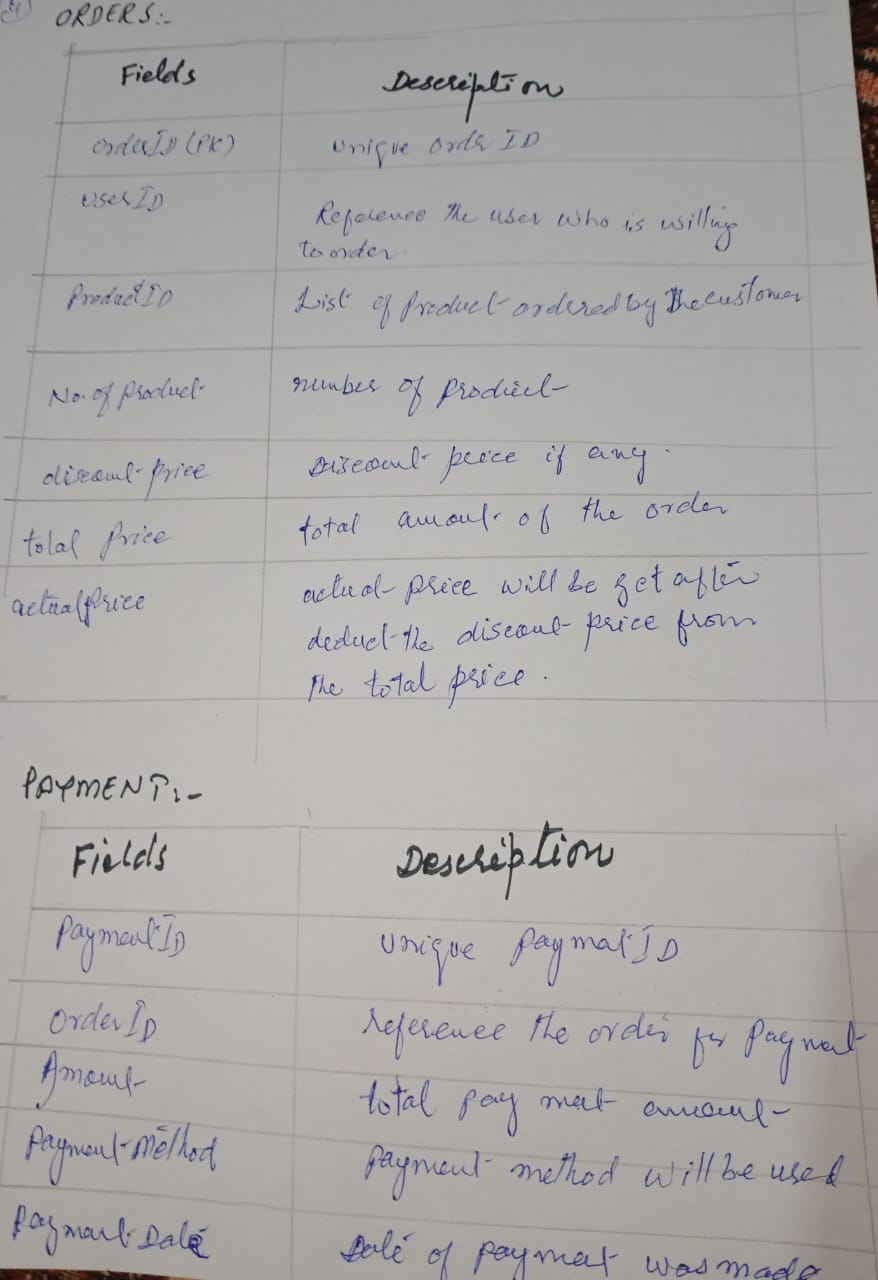 ORDERS:-
Fields Description
OrderID (PK) Unique Order ID
UserID
Reference the user who is willing
to order.
ProductID List of Product ordered by the customer
No. of Product number of Product
discount price Discount price if any.
total Price total amount of the order
actual price actual price will be get after
deduct the discount price from
the total price.
PAYMENT:-
Fields Description
PaymentID Unique PaymentID
OrderID reference the order for Payment
Amount total payment amount
Payment Method Payment method will be used
Payment Date Date of payment was made